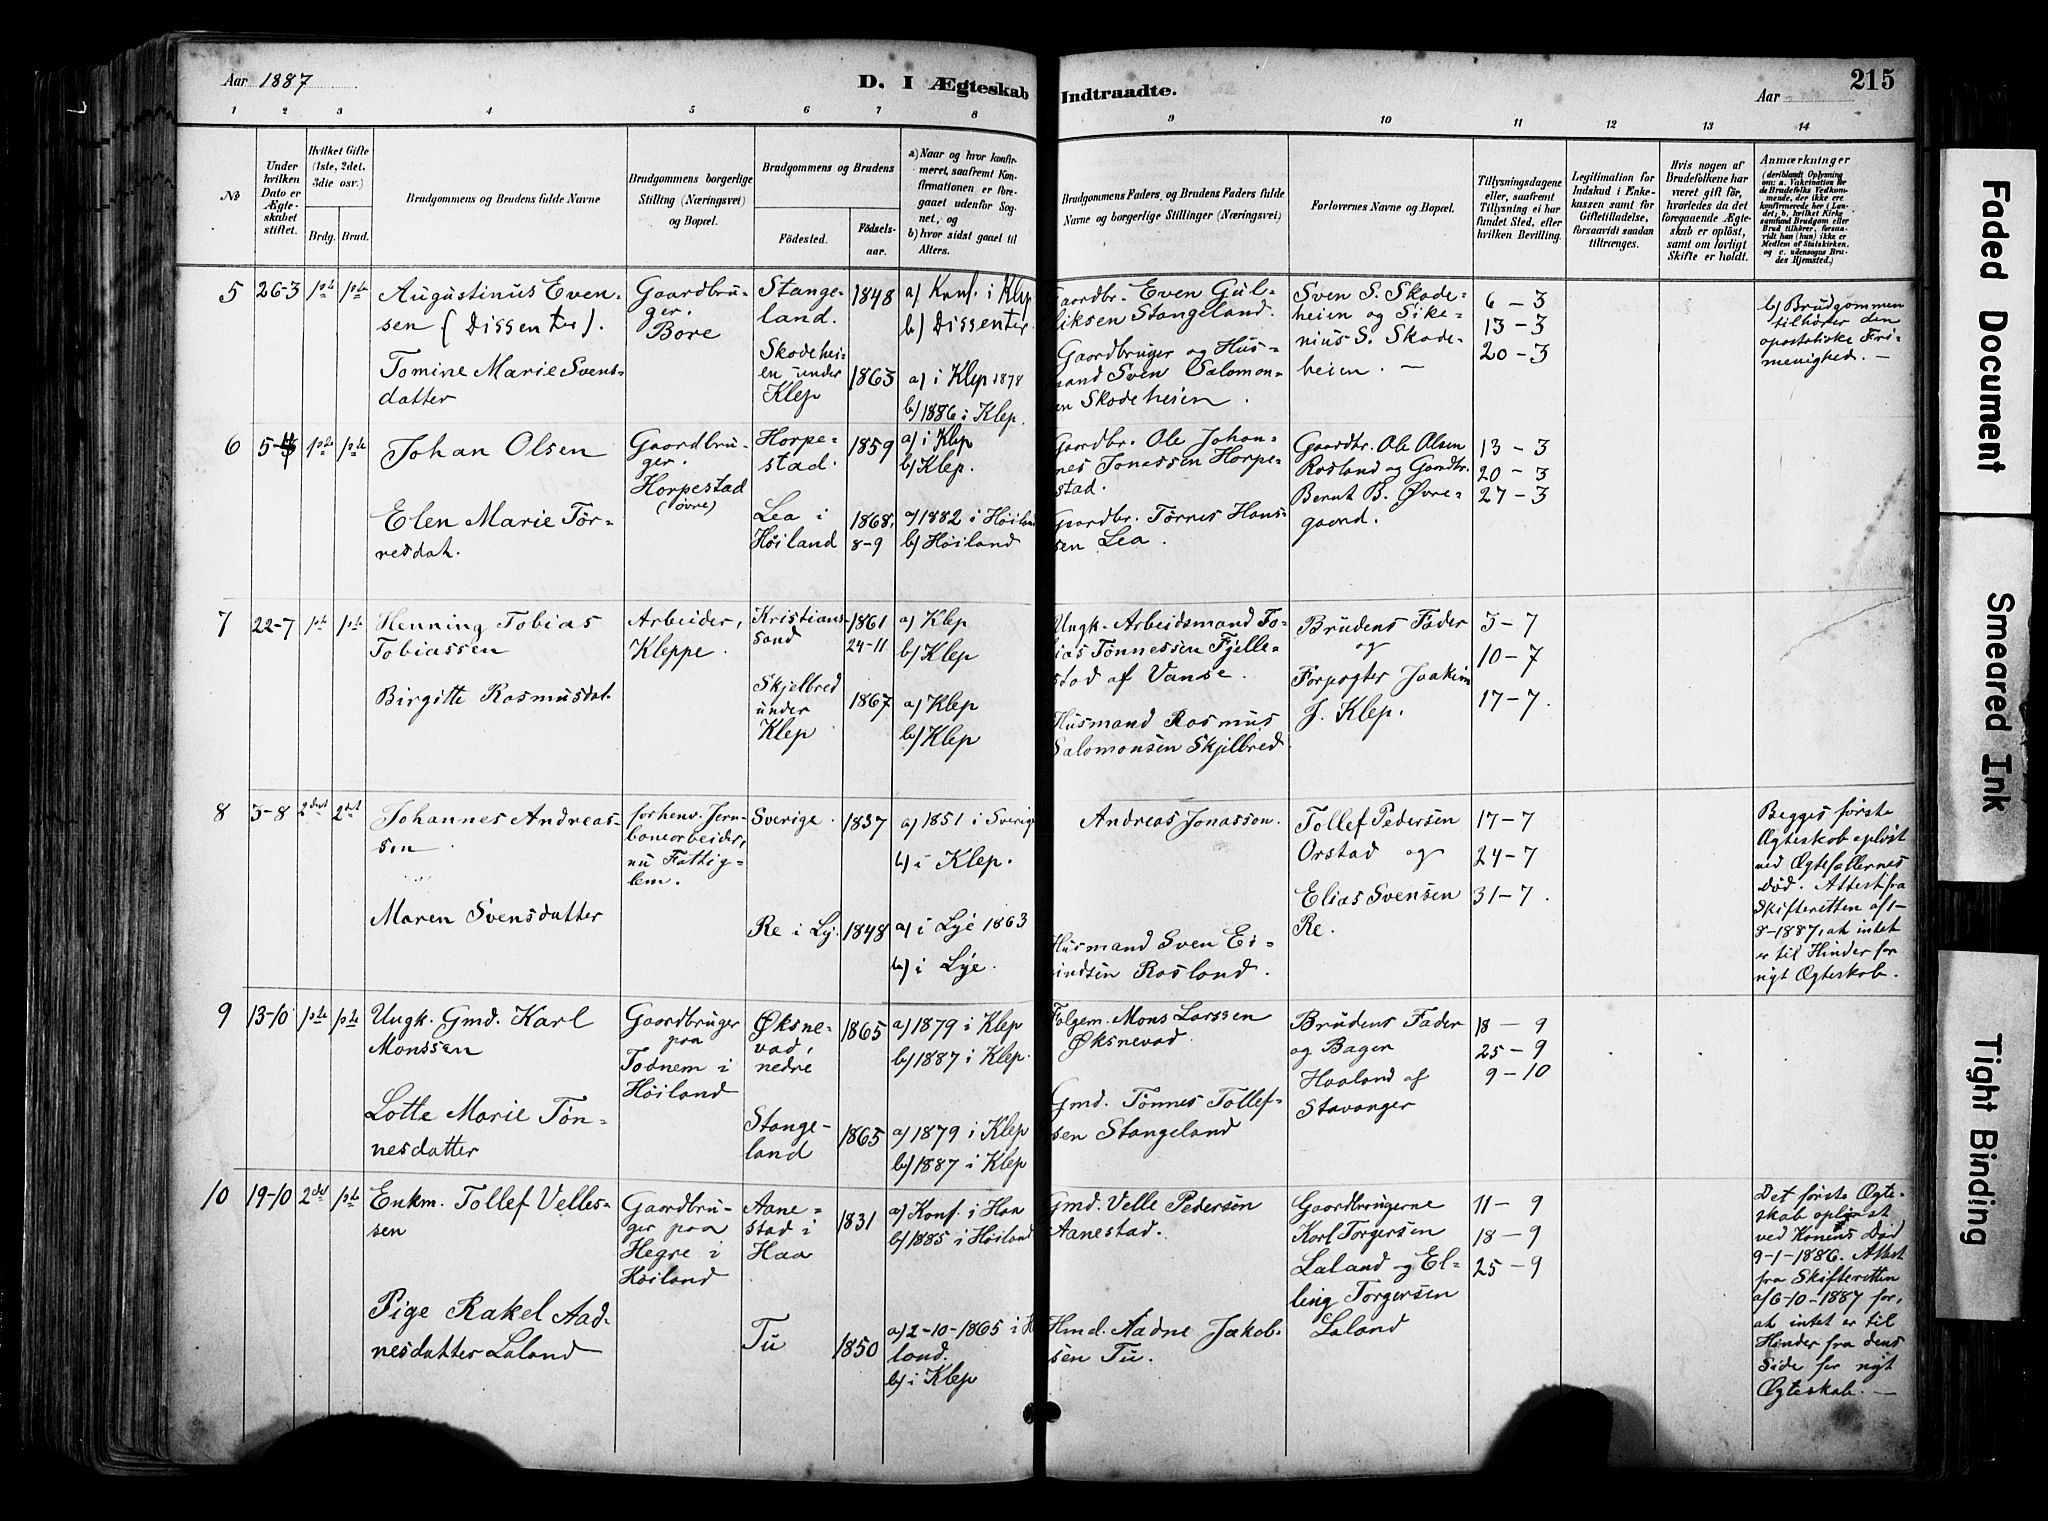 Aar 1887
D. I Ægteskab Indtraadte.
Aar
215
1 2 3 4 5 6 7 8 9 10 11 12 13 14
No
Under hvilken Dato er Ægteskabet stiftet.
Hvilket Gifte (1ste, 2det, 3die osv.)
Brdg. Brud.
Brudgommens og Brudens fulde Navne
Brudgommens borgerlige Stilling (Næringsvei) og Bopæl.
Brudgommens og Brudens
Fødested. Fødselsaar.
a) Naar og hvor konfirmeret, saafremt Konfirmationen er foregaaet udenfor Sognet, og
b) hvor sidst gaaet til Alters.
Brudgommens Faders og Brudens Faders fulde Navne og borgerlige Stillinger (Næringsvei)
Forlovernes Navne og Bopæl.
Tillysningsdagene eller, saafremt Tillysning ei har fundet Sted, efter hvilken Bevilling.
Legitimation for Indskud i Enkekassen samt for Giftetilladelse, forsaavidt saadan tiltrænges.
Hvis nogen af Brudefolkene har været gift før, hvorledes da det foregaaende Ægteskab er opløst, samt om lovligt Skifte er holdt.
Anmærkninger (deriblandt Oplysning om: a. Vakcination for de Brudefolks Vedkommende, der ikke ere konfirmerede her i Landet; b. hvilket Kirkesamfund Brudgom eller Brud tilhører, forsaavidt han (hun) ikke er Medlem af Statskirken, og c. udensogns Brudes Hjemsted.)
5 26-3 1ste 1ste
Augustinus Evensen (Dissenter).
Gaardbruger. Bore
Stangeland. 1848
a) Konf. i Klep
b) Dissenter.
Gaardbr. Even Guliksen Stangeland.
Sven S. Skodeheien og Sikenius S. Skodeheien. —
6 – 3
13 – 3
20 – 3
b) Brudgommen tilhører den apostoliske Frimenighed. —
Tomine Marie Svensdatter
Skodeheien under Klep 1863
a) i Klep 1878
b) 1886 i Klep.
Gaardbruger og Husmand Sven Salomonsen Skodeheien.
6 5- 1ste 1ste
Johan Olsen
Gaardbruger. Horpestad (øvre)
Horpestad. 1859
a) i Klep
b) Klep.
Gaardbr. Ole Johannes Jonassen Horpestad.
Gaardbr. Ole Olsen Rosland og Gaardbr. Bernt B. Øvregaard.
13 – 3
20 – 3
27 – 3
Elen Marie Tørresdat.
Lea i Høiland 1868, 8-9
a) 1882 i Høiland
b) Høiland
Gaardbr. Tørres Hanssen Lea.
7 22-7 1ste 1ste
Henning Tobias Tobiassen
Arbeider, Kleppe.
Kristianssand 1861 24-11
a) Klep
b) Klep
Ungk. Arbeidsmand Tobias Tønnessen Fjellestad af Vanse.
Brudens Fader og Forpagter Joakim J. Klep.
3 – 7
10 – 7
17 – 7.
Birgitte Rasmusdat.
Skjelbred under Klep 1867
a) Klep
b) Klep
Husmand Rasmus Salomonsen Skjelbred.
8 3-8 2det 2det
Johannes Andreassen
forhenv. Jernbanearbeider, nu Fattiglem.
Sverige. 1837
a) 1851 i Sverige
b) i Klep.
Andreas Jonasson.
Tollef Pedersen Orstad og Elias Svensen Re.
17 – 7
24 – 7
31 – 7.
Begges første Ægteskab opløst ved Ægtefællernes Død. Attest fra Skifteretten af 1-8-1887, at intet er til Hinder for nyt Ægteskab.
Maren Svensdatter
Re i Ly. 1848
a) i Lye 1863
b) i Lye.
Husmand Sven Eivindsen Rosland.
9 13-10 1ste 1ste
Ungk. Gmd. Karl Monssen
Gaardbruger paa Todnem i Høiland
Øksnevad, nedre 1865
a) 1879 i Klep
b) 1887 i Klep.
Følgem. Mons Larssen Øksnevad.
Brudens Fader og Bager Haaland af Stavanger
18 – 9
25 – 9
9 – 10
Lotte Marie Tønnesdatter
Stangeland 1865
a) 1879 i Klep
b) 1887 i Klep
Gmd. Tønnes Tollefsen Stangeland
10 19-10 2det 1ste
Enkm. Tollef Vellessen
Gaardbruger paa Hegre i Høiland
Aanestad i Haa 1831
a) Konf. i Haa
b) 1885 i Høiland
Gmd. Velle Pedersøn Aanestad.
Gaardbrugerne Karl Torgersen Laland og Elling Torgersen Laland
11 – 9
18 – 9
25 – 9
Det første Ægteskab opløst ved Konens Død 9-1-1886. Attest fra Skifteretten af 6-10-1887 for, at intet er til Hinder fra dens Side for nyt Ægteskab. —
Pige Rakel Aadnesdatter Laland
Tu 1850
a) 2-10-1865 i
b) i Klep
Hmd. Aadne Jakobsen Tu.
Faded Document
Smeared Ink
Tight Binding